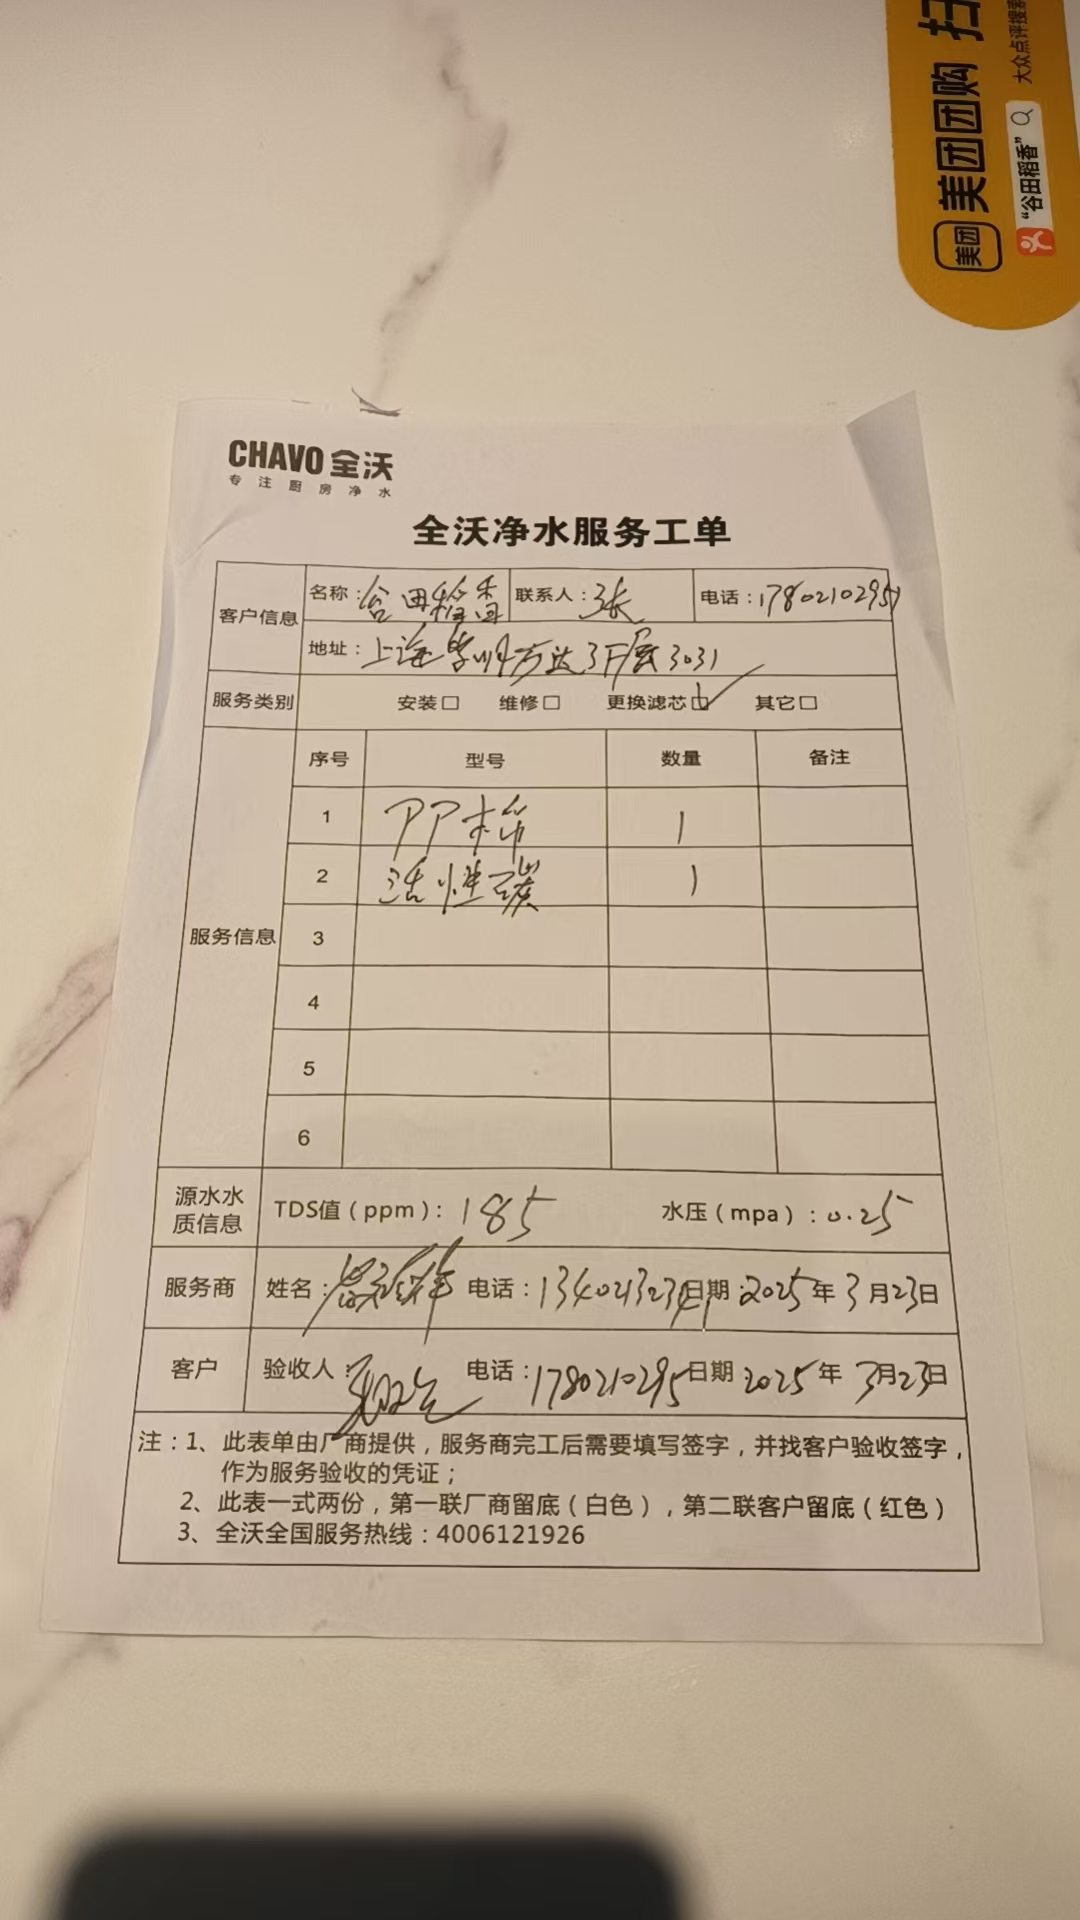 扫
美团 美团团购
大众点评搜索
“谷田稻香”
CHAVO 全沃
专注厨房净水
全沃净水服务工单
客户信息 名称：谷田稻香 联系人：张 电话：17802102951
地址：上海 万达3F层3031
服务类别 安装□ 维修□ 更换滤芯☑ 其它□
服务信息 序号 型号 数量 备注
1 PP棉 1
2 活性碳 1
3
4
5
6
源水水质信息 TDS值（ppm）：185 水压（mpa）：0.25
服务商 姓名： 电话：13402132341 日期：2025年3月23日
客户 验收人： 电话：1780210295 日期 2025年3月23日
注：1、此表单由厂商提供，服务商完工后需要填写签字，并找客户验收签字，
作为服务验收的凭证；
2、此表一式两份，第一联厂商留底（白色），第二联客户留底（红色）
3、全沃全国服务热线：4006121926